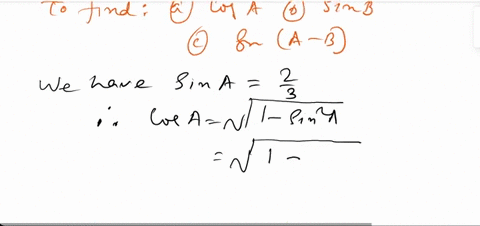 To find: (a) Cos A (b) Sin B
(c) Sin (A - B)
We have Sin A = 2/3
∴ Cos A = √(1 - Sin²A
= √(1 -